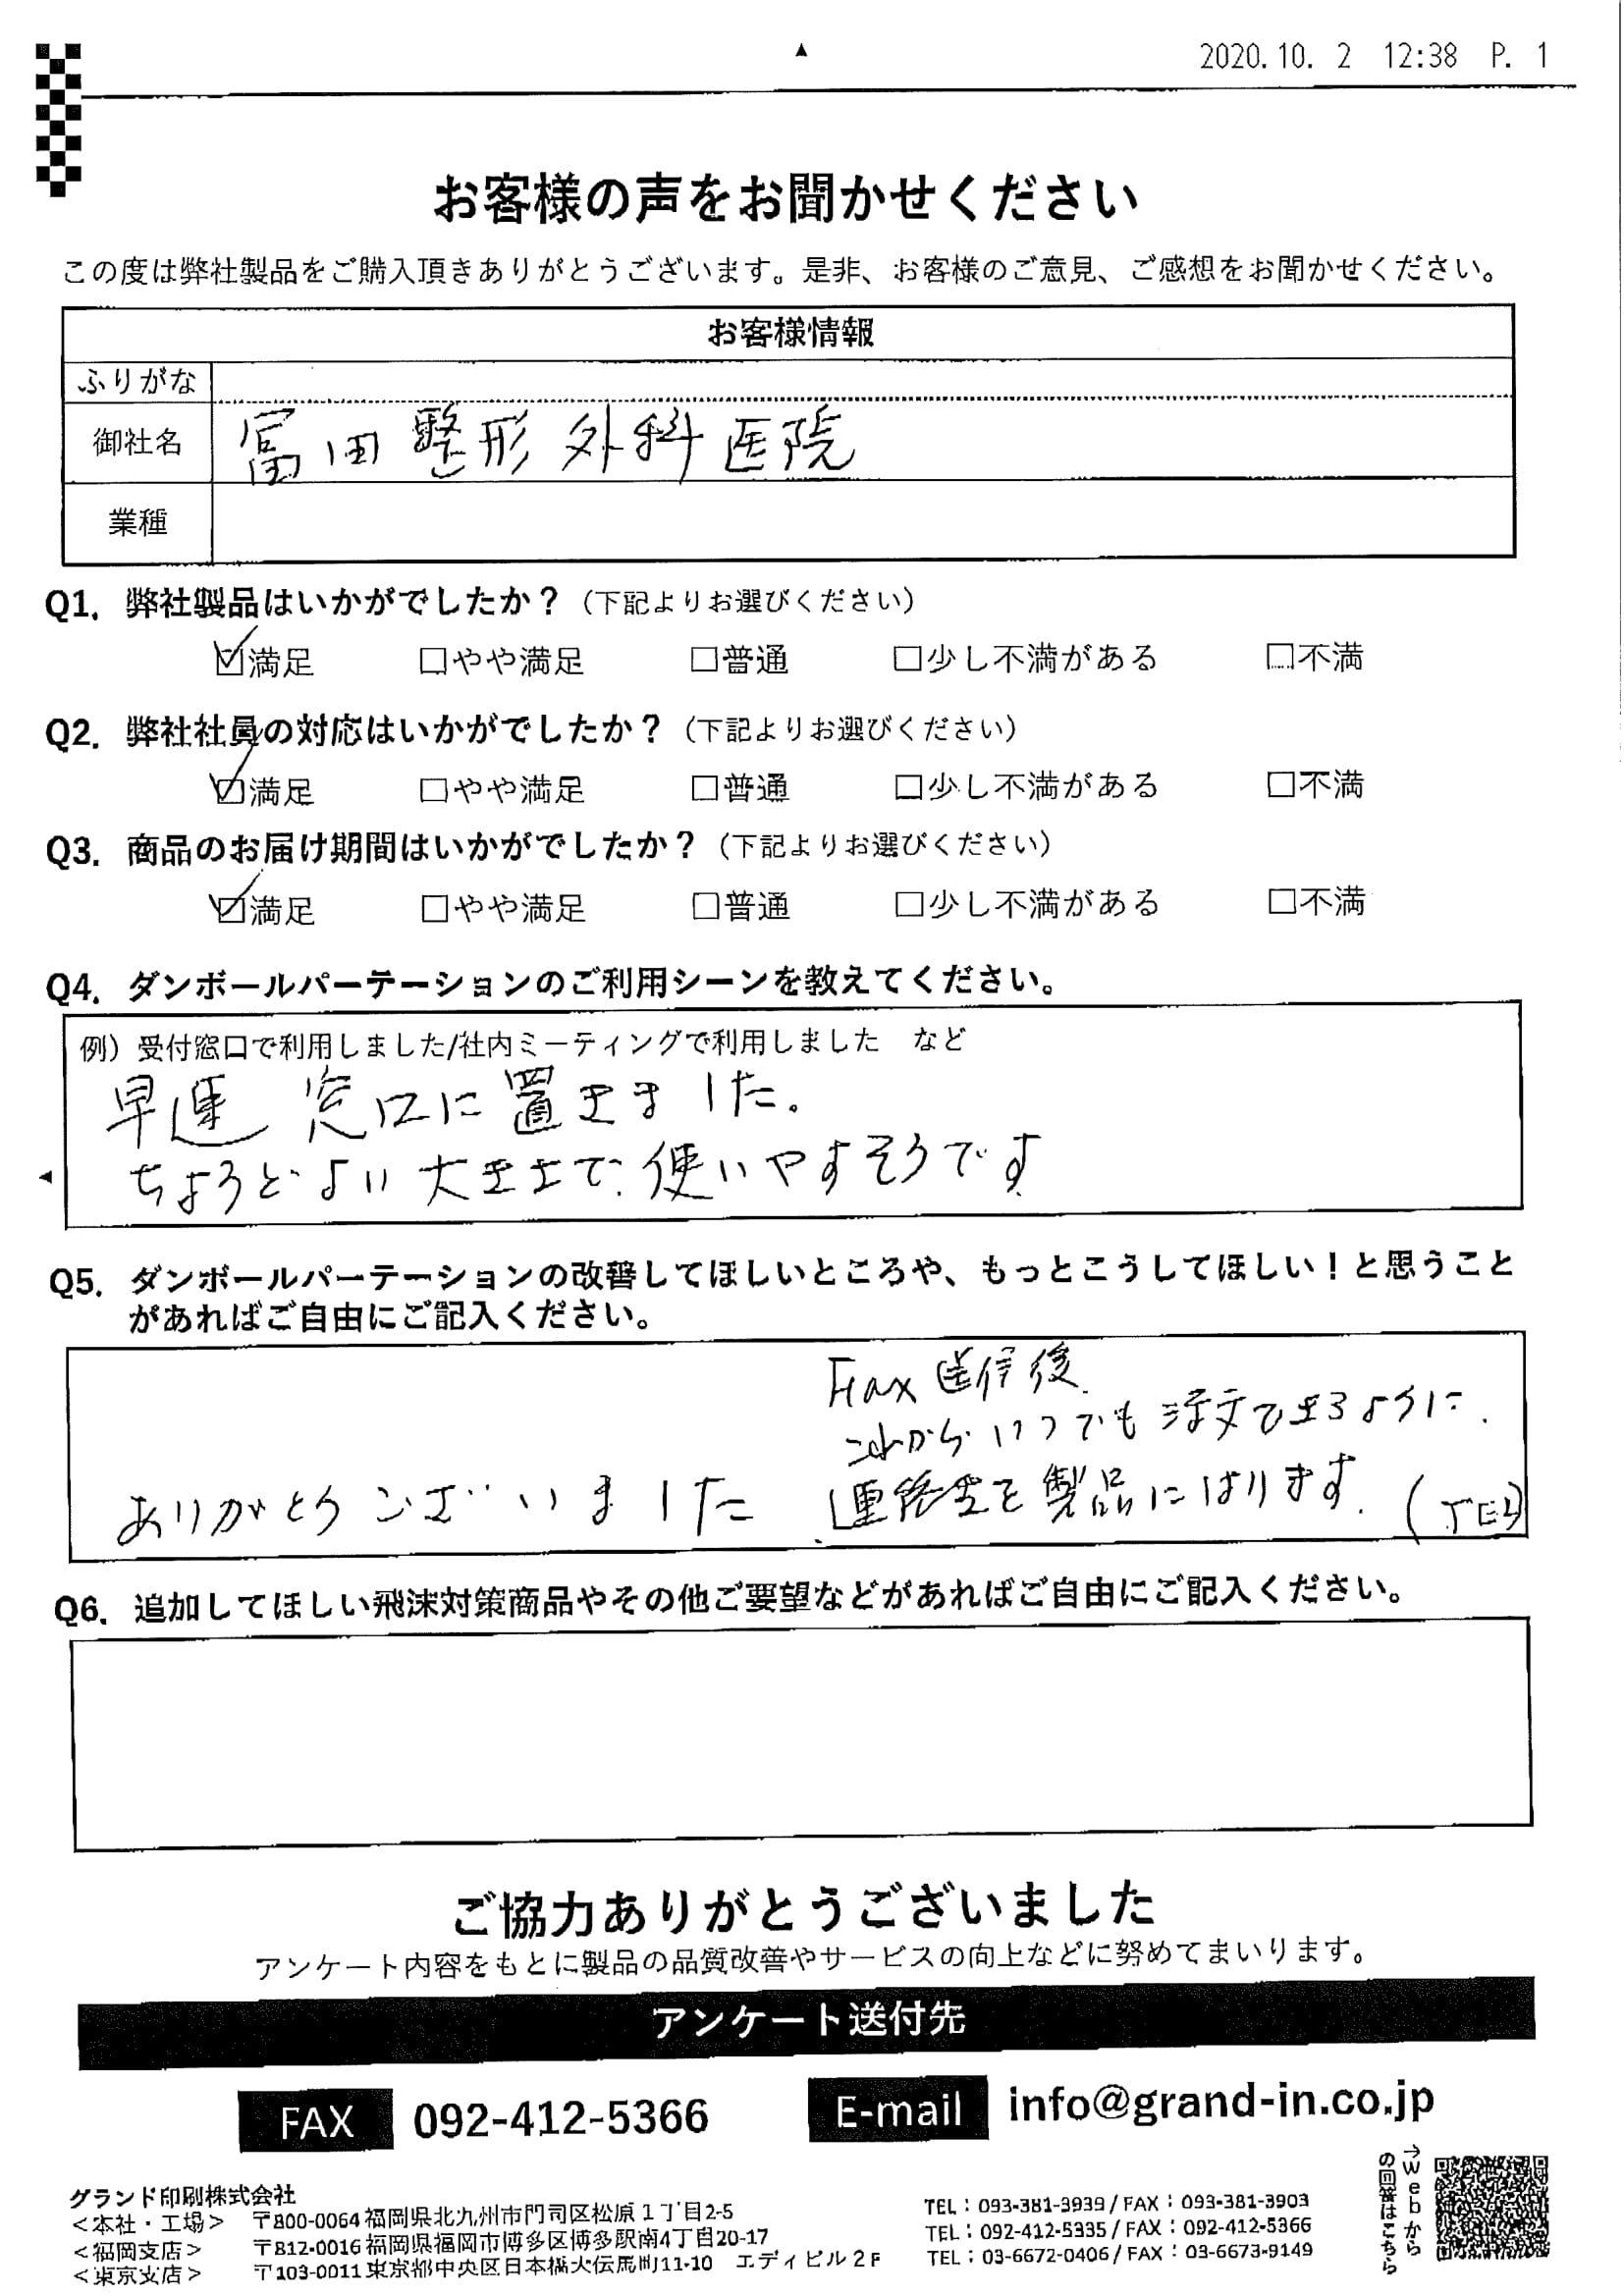 2020.10. 2 12:38 P. 1
お客様の声をお聞かせください
この度は弊社製品をご購入頂きありがとうございます。是非、お客様のご意見、ご感想をお聞かせください。
お客様情報
ふりがな
御社名 冨田整形外科医院
業種
Q1. 弊社製品はいかがでしたか？（下記よりお選びください）
☑満足 □やや満足 □普通 □少し不満がある □不満
Q2. 弊社社員の対応はいかがでしたか？（下記よりお選びください）
☑満足 □やや満足 □普通 □少し不満がある □不満
Q3. 商品のお届け期間はいかがでしたか？（下記よりお選びください）
☑満足 □やや満足 □普通 □少し不満がある □不満
Q4. ダンボールパーテーションのご利用シーンを教えてください。
例）受付窓口で利用しました/社内ミーティングで利用しました など
早速 窓口に置きました。
ちょうどよい大きさで、使いやすそうです
Q5. ダンボールパーテーションの改善してほしいところや、もっとこうしてほしい！と思うこと
があればご自由にご記入ください。
Fax送信後、
これからいつでも注文できるように、
ありがとうございました 連絡先を製品にはります。(TEL)
Q6. 追加してほしい飛沫対策商品やその他ご要望などがあればご自由にご記入ください。
ご協力ありがとうございました
アンケート内容をもとに製品の品質改善やサービスの向上などに努めてまいります。
アンケート送付先
FAX 092-412-5366 E-mail info@grand-in.co.jp
→Webから
の回答はこちら
グランド印刷株式会社
＜本社・工場＞ 〒800-0064 福岡県北九州市門司区松原１丁目2-5 TEL：093-381-3939 / FAX：093-381-3903
＜福岡支店＞ 〒812-0016 福岡県福岡市博多区博多駅南4丁目20-17 TEL：092-412-5335 / FAX：092-412-5366
＜東京支店＞ 〒103-0011 東京都中央区日本橋大伝馬町11-10 エディビル２F TEL：03-6672-0406 / FAX：03-6673-9149